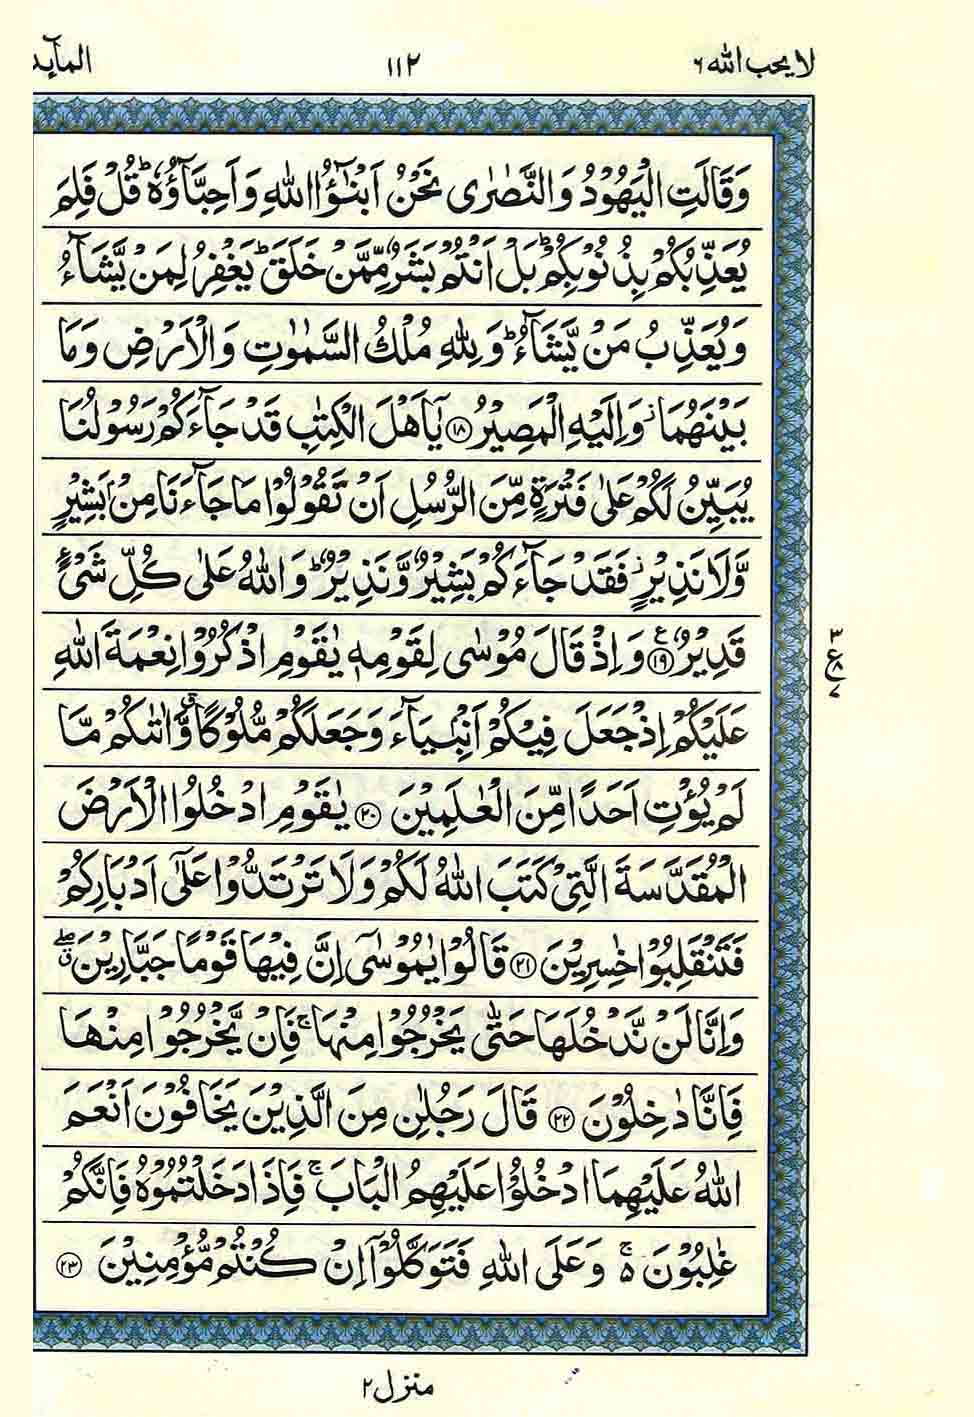 لا يحب الله ٦
١١٢
المآىد
وَقَالَتِ الْيَهُوْدُ وَالنَّصٰرٰى نَحْنُ اَبْنٰٓؤُا اللّٰهِ وَاَحِبَّآؤُهٗ ؕ قُلْ فَلِمَ
يُعَذِّبُكُمْ بِذُنُوْبِكُمْ ؕ بَلْ اَنْتُمْ بَشَرٌ مِّمَّنْ خَلَقَ ؕ يَغْفِرُ لِمَنْ يَّشَآءُ
وَيُعَذِّبُ مَنْ يَّشَآءُ ؕ وَلِلّٰهِ مُلْكُ السَّمٰوٰتِ وَالْاَرْضِ وَمَا
بَيْنَهُمَا ؗ وَاِلَيْهِ الْمَصِيْرُ ﴿١٨﴾ يٰۤاَهْلَ الْكِتٰبِ قَدْ جَآءَكُمْ رَسُوْلُنَا
يُبَيِّنُ لَكُمْ عَلٰى فَتْرَةٍ مِّنَ الرُّسُلِ اَنْ تَقُوْلُوْا مَا جَآءَنَا مِنْۢ بَشِيْرٍ
وَّلَا نَذِيْرٍ ؗ فَقَدْ جَآءَكُمْ بَشِيْرٌ وَّنَذِيْرٌ ؕ وَاللّٰهُ عَلٰى كُلِّ شَیْءٍ
قَدِيْرٌ ﴿١٩﴾ ع وَاِذْ قَالَ مُوْسٰى لِقَوْمِهٖ يٰقَوْمِ اذْكُرُوْا نِعْمَةَ اللّٰهِ
عَلَيْكُمْ اِذْ جَعَلَ فِيْكُمْ اَنْۢبِيَآءَ وَجَعَلَكُمْ مُّلُوْكًا ۗ وَّاٰتٰىكُمْ مَّا
لَمْ يُؤْتِ اَحَدًا مِّنَ الْعٰلَمِيْنَ ﴿٢٠﴾ يٰقَوْمِ ادْخُلُوا الْاَرْضَ
الْمُقَدَّسَةَ الَّتِيْ كَتَبَ اللّٰهُ لَكُمْ وَلَا تَرْتَدُّوْا عَلٰۤى اَدْبَارِكُمْ
فَتَنْقَلِبُوْا خٰسِرِيْنَ ﴿٢١﴾ قَالُوْا يٰمُوْسٰۤى اِنَّ فِيْهَا قَوْمًا جَبَّارِيْنَ ۖ
وَاِنَّا لَنْ نَّدْخُلَهَا حَتّٰى يَخْرُجُوْا مِنْهَا ۚ فَاِنْ يَّخْرُجُوْا مِنْهَا
فَاِنَّا دٰخِلُوْنَ ﴿٢٢﴾ قَالَ رَجُلٰنِ مِنَ الَّذِيْنَ يَخَافُوْنَ اَنْعَمَ
اللّٰهُ عَلَيْهِمَا ادْخُلُوْا عَلَيْهِمُ الْبَابَ ۚ فَاِذَا دَخَلْتُمُوْهُ فَاِنَّكُمْ
غٰلِبُوْنَ ۚ۬ وَعَلَى اللّٰهِ فَتَوَكَّلُوْۤا اِنْ كُنْتُمْ مُّؤْمِنِيْنَ ﴿٢٣﴾
٣
ع ٨
٧
منزل ٢